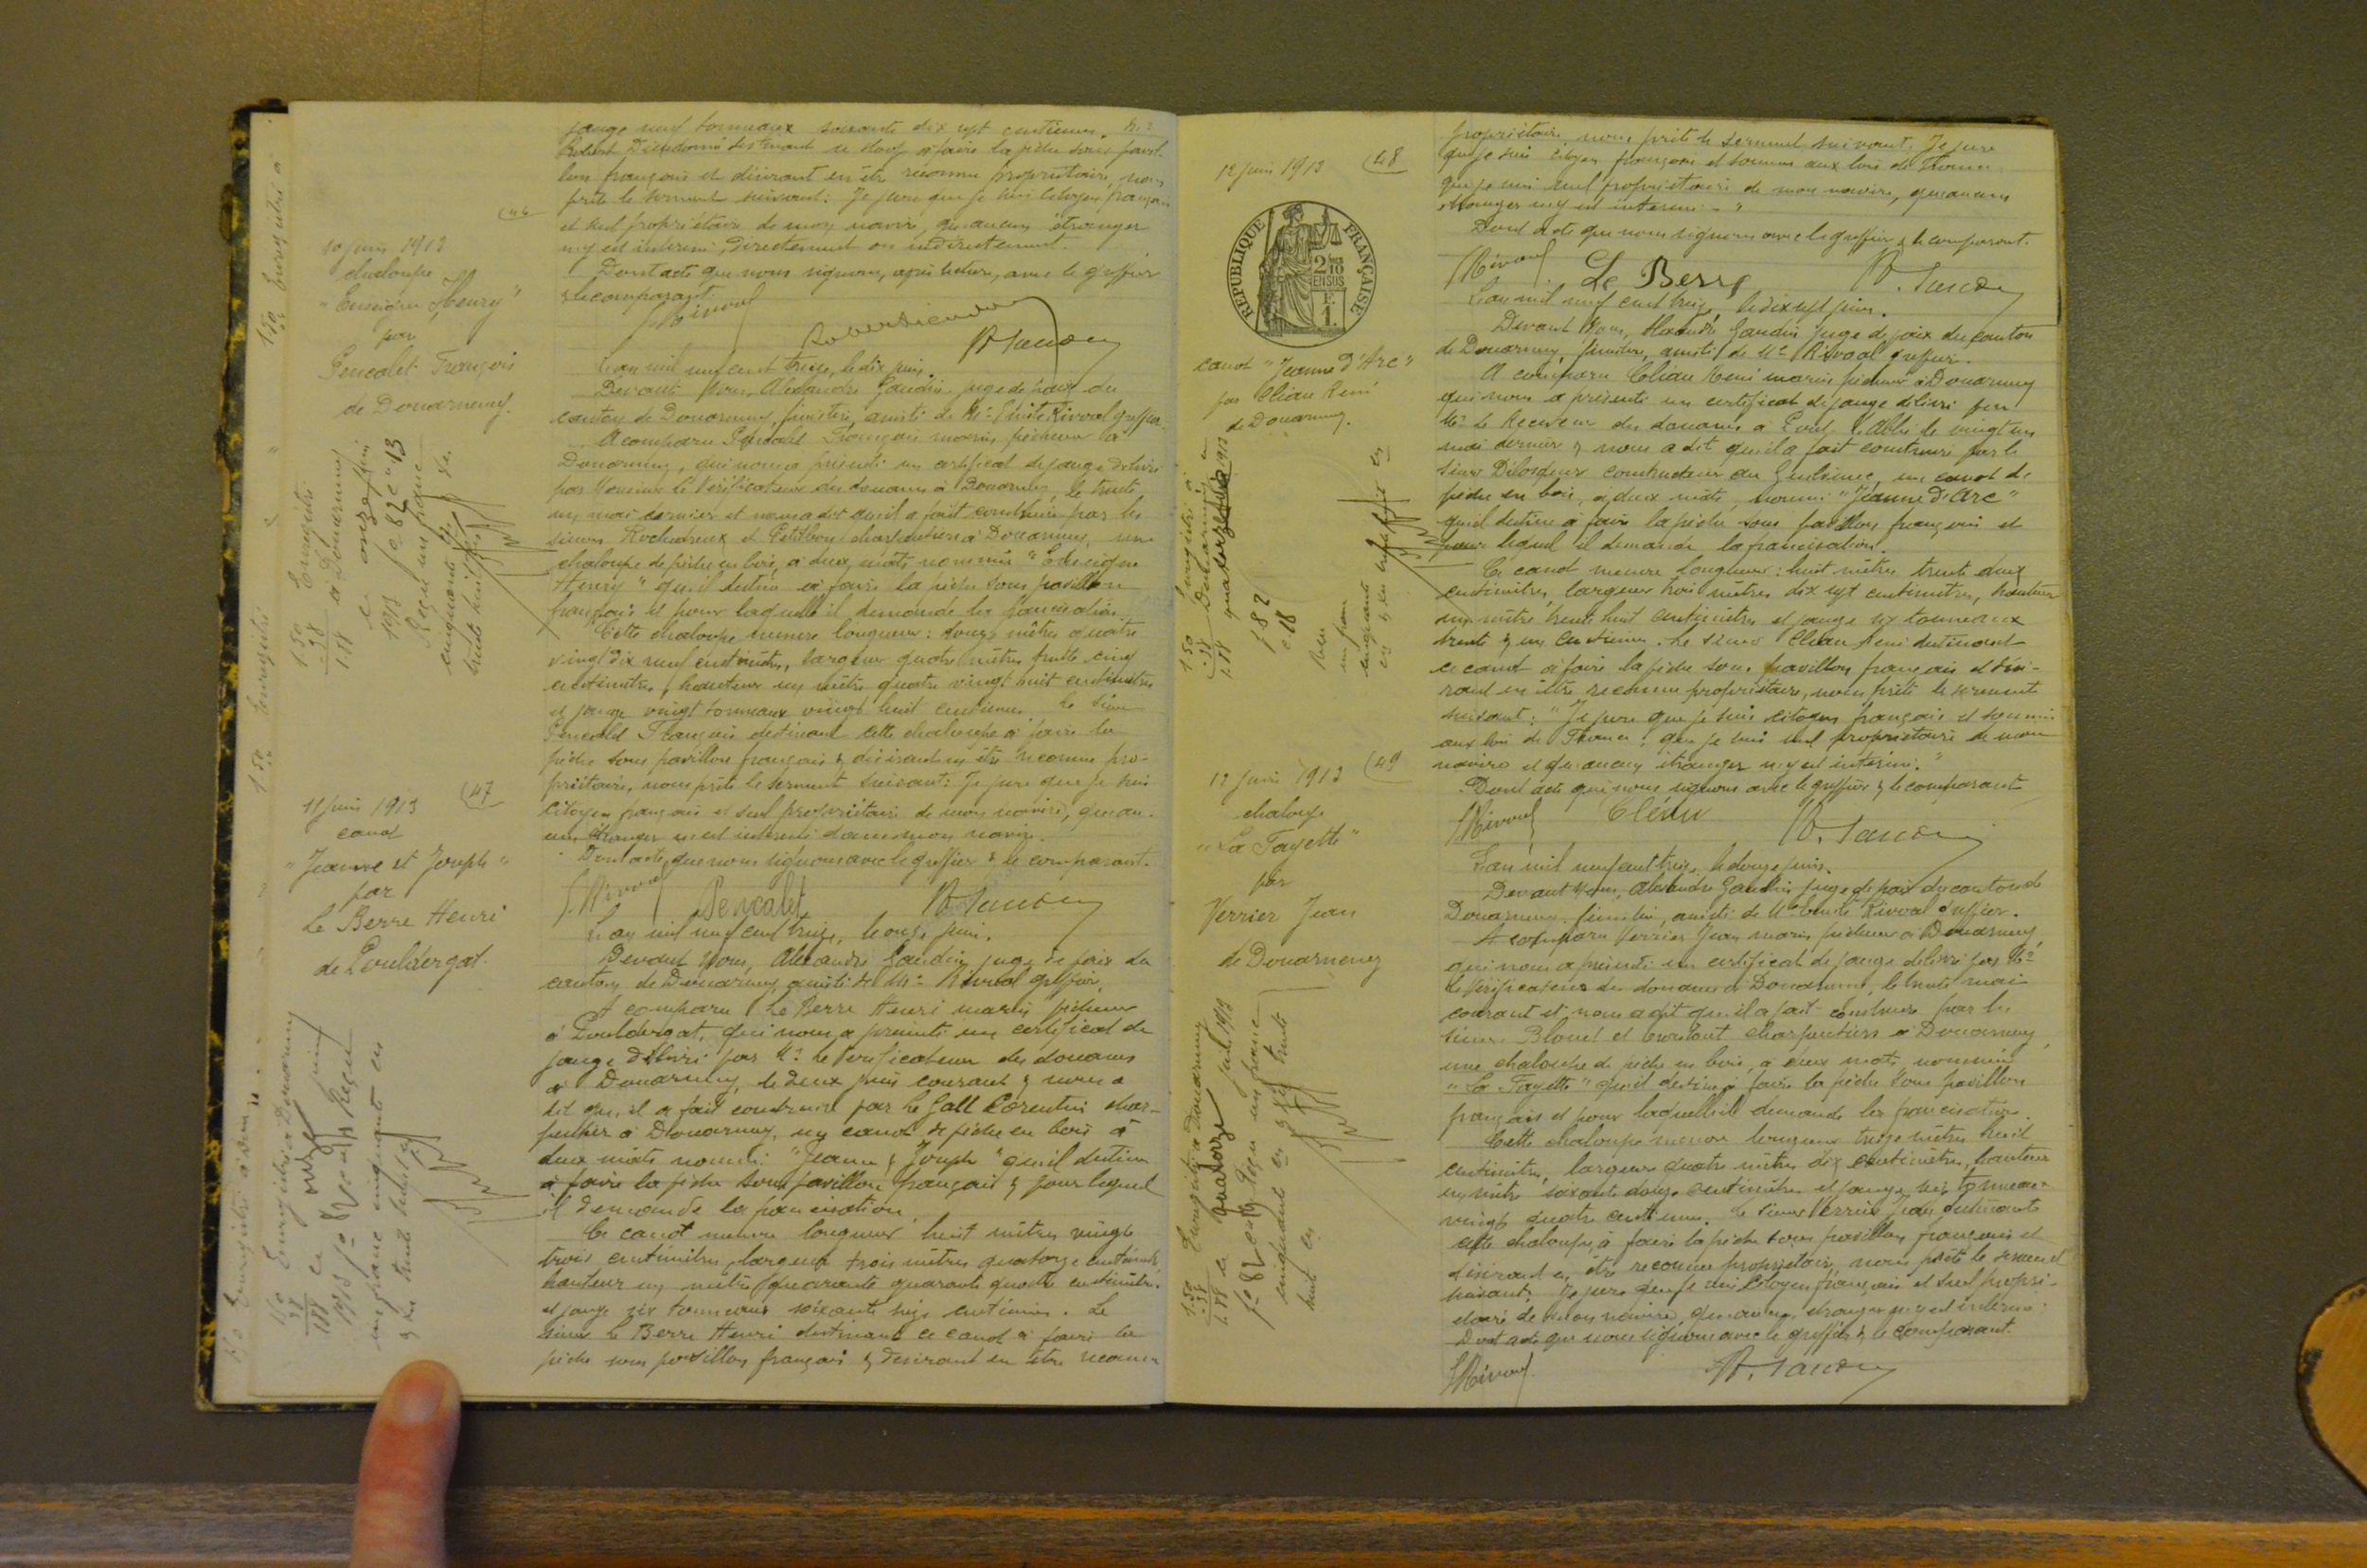 jauge neuf tonneaux soixante dix sept centièmes. Mr
Robert Dieudonné destinant ce sloop à faire la pêche sous pavil-
lon français et désirant en être reconnu propriétaire, nous
prête le serment suivant: Je jure que je suis citoyen français
et seul propriétaire de mon navire, qu'aucun étranger
n'y est intéressé, directement ou indirectement.
Dont acte que nous signons, après lecture, avec le greffier
& le comparant.
46
10 juin 1913
chaloupe
"Enseigne Henry"
par
Pencalet François
de Douarnenez.
Enregistré
à Douarnenez
le onze juin
1913 fo 82 c 13
Reçu un franc
cinquante
trente huit
1.50
.38
1.88
L'an mil neuf cent treize, le dix juin.
Devant Nous, Alexandre Gaudin juge de paix du
canton de Douarnenez, finistère, assisté de Me Emile Rivoal greffier.
A comparu Pencalet François marin pêcheur à
Douarnenez, qui nous a présenté un certificat de jauge délivré
par Monsieur le Vérificateur des douanes à Douarnenez, le trente
un mai dernier et nous a dit qu'il a fait construire par les
sieurs et Petitbon charpentiers à Douarnenez, une
chaloupe de pêche en bois, à deux mâts nommée "Enseigne
Henry" qu'il destine à faire la pêche sous pavillon
français et pour laquelle il demande la francisation.
Cette chaloupe mesure longueur: douze mètres quatre
vingt dix neuf centimètres, largeur quatre mètres trente cinq
centimètres, hauteur un mètre quatre vingt huit centimètres
et jauge vingt tonneaux vingt huit centièmes. Le sieur
Pencalet François destinant cette chaloupe à faire la
pêche sous pavillon français & désirant en être reconnu pro-
priétaire, nous prête le serment suivant: Je jure que je suis
citoyen français et seul propriétaire de mon navire, qu'au-
cun étranger n'est intéressé dans mon navire.
Dont acte que nous signons avec le greffier & le comparant.
Pencalet
47
11 juin 1913
canot
"Jeanne et Joseph"
par
Le Berre Henri
de Pouldergat.
Enregistré à Douarnenez
le onze juin
1913 fo 82 Reçu
un franc cinquante
& trente huit
1.50
.38
1.88
L'an mil neuf cent treize, le onze juin.
Devant Nous, Alexandre Gaudin juge de paix du
canton de Douarnenez assisté de Me Rivoal greffier,
A comparu Le Berre Henri marin pêcheur
à Pouldergat, qui nous a présenté un certificat de
jauge délivré par Mr le Vérificateur des douanes
à Douarnenez, le deux juin courant & nous a
dit qu'il a fait construire par Le Gall Corentin char-
pentier à Douarnenez, un canot de pêche en bois à
deux mâts nommé: "Jeanne & Joseph" qu'il destine
à faire la pêche sous pavillon français & pour lequel
il demande la francisation.
Ce canot mesure longueur huit mètres vingt
trois centimètres, largeur trois mètres quatorze centimètres,
hauteur un mètre quarante quarante quatre centimètres
et jauge six tonneaux soixante centièmes. Le
sieur Le Berre Henri destinant ce canot à faire la
pêche sous pavillon français & désirant en être reconnu
propriétaire, nous prête le serment suivant: Je jure
que je suis citoyen français et soumis aux lois de France
que je suis seul propriétaire de mon navire, qu'aucun
étranger n'y est intéressé."
Dont acte que nous signons avec le greffier & le comparant.
Le Berre
48
12 juin 1913
REPUBLIQUE FRANÇAISE
2/10 EN SUS
1 F.
canot "Jeanne d'Arc"
par Cléau René
de Douarnenez.
Enregistré à
Douarnenez le
quatorze juin 1913
f 82
c 18
1.50
.38
1.88
L'an mil neuf cent treize, le dix sept juin.
Devant Nous, Alexandre Gaudin juge de paix du canton
de Douarnenez, finistère, assisté de Me Rivoal greffier.
A comparu Cléau René marin pêcheur à Douarnenez
qui nous a présenté un certificat de jauge délivré par
Mr le Receveur des douanes à Pont l'Abbé le vingt un
mai dernier & nous a dit qu'il a fait construire par le
sieur constructeur au Guilvinec, un canot de
pêche en bois, à deux mâts, nommé: "Jeanne d'Arc"
qu'il destine à faire la pêche sous pavillon français et
pour lequel il demande la francisation.
Ce canot mesure longueur: huit mètres trente deux
centimètres, largeur trois mètres dix sept centimètres, hauteur
un mètre trente huit centimètres et jauge six tonneaux
trente & un centièmes. Le sieur Cléau René destinant
ce canot à faire la pêche sous pavillon français et dési-
rant en être reconnu propriétaire, nous prête le serment
suivant: "Je jure que je suis citoyen français et soumis
aux lois de France; que je suis seul propriétaire de mon
navire et qu'aucun étranger n'y est intéressé."
Dont acte que nous signons avec le greffier & le comparant
49
12 Juin 1913
chaloupe
"La Fayette"
par
Verrier Jean
de Douarnenez
Enregistré à Douarnenez
le quatorze juin 1913
fo 82 c 19 Reçu un franc
cinquante trente
huit
1.50
.38
1.88
L'an mil neuf cent treize, le douze juin.
Devant Nous, Alexandre Gaudin juge de paix du canton de
Douarnenez, finistère, assisté de Me Emile Rivoal greffier.
A comparu Verrier Jean marin pêcheur à Douarnenez
qui nous a présenté un certificat de jauge délivré par Mr
le Vérificateur des douanes à Douarnenez, le trente mai
courant et nous a dit qu'il a fait construire par les
sieurs charpentiers à Douarnenez,
une chaloupe de pêche en bois, à deux mâts, nommée
"La Fayette" qu'il destine à faire la pêche sous pavillon
français et pour laquelle il demande la francisation.
Cette chaloupe mesure longueur treize mètres huit
centimètres, largeur quatre mètres dix centimètres, hauteur
un mètre soixante douze centimètres et jauge tonneaux
vingt quatre centièmes. Le sieur Verrier Jean destinant
cette chaloupe à faire la pêche sous pavillon français et
désirant en être reconnu propriétaire, nous prête le serment
suivant: Je jure que je suis citoyen français et seul propri-
étaire de mon navire, qu'aucun étranger n'y est intéressé.
Dont acte que nous signons avec le greffier & le comparant.